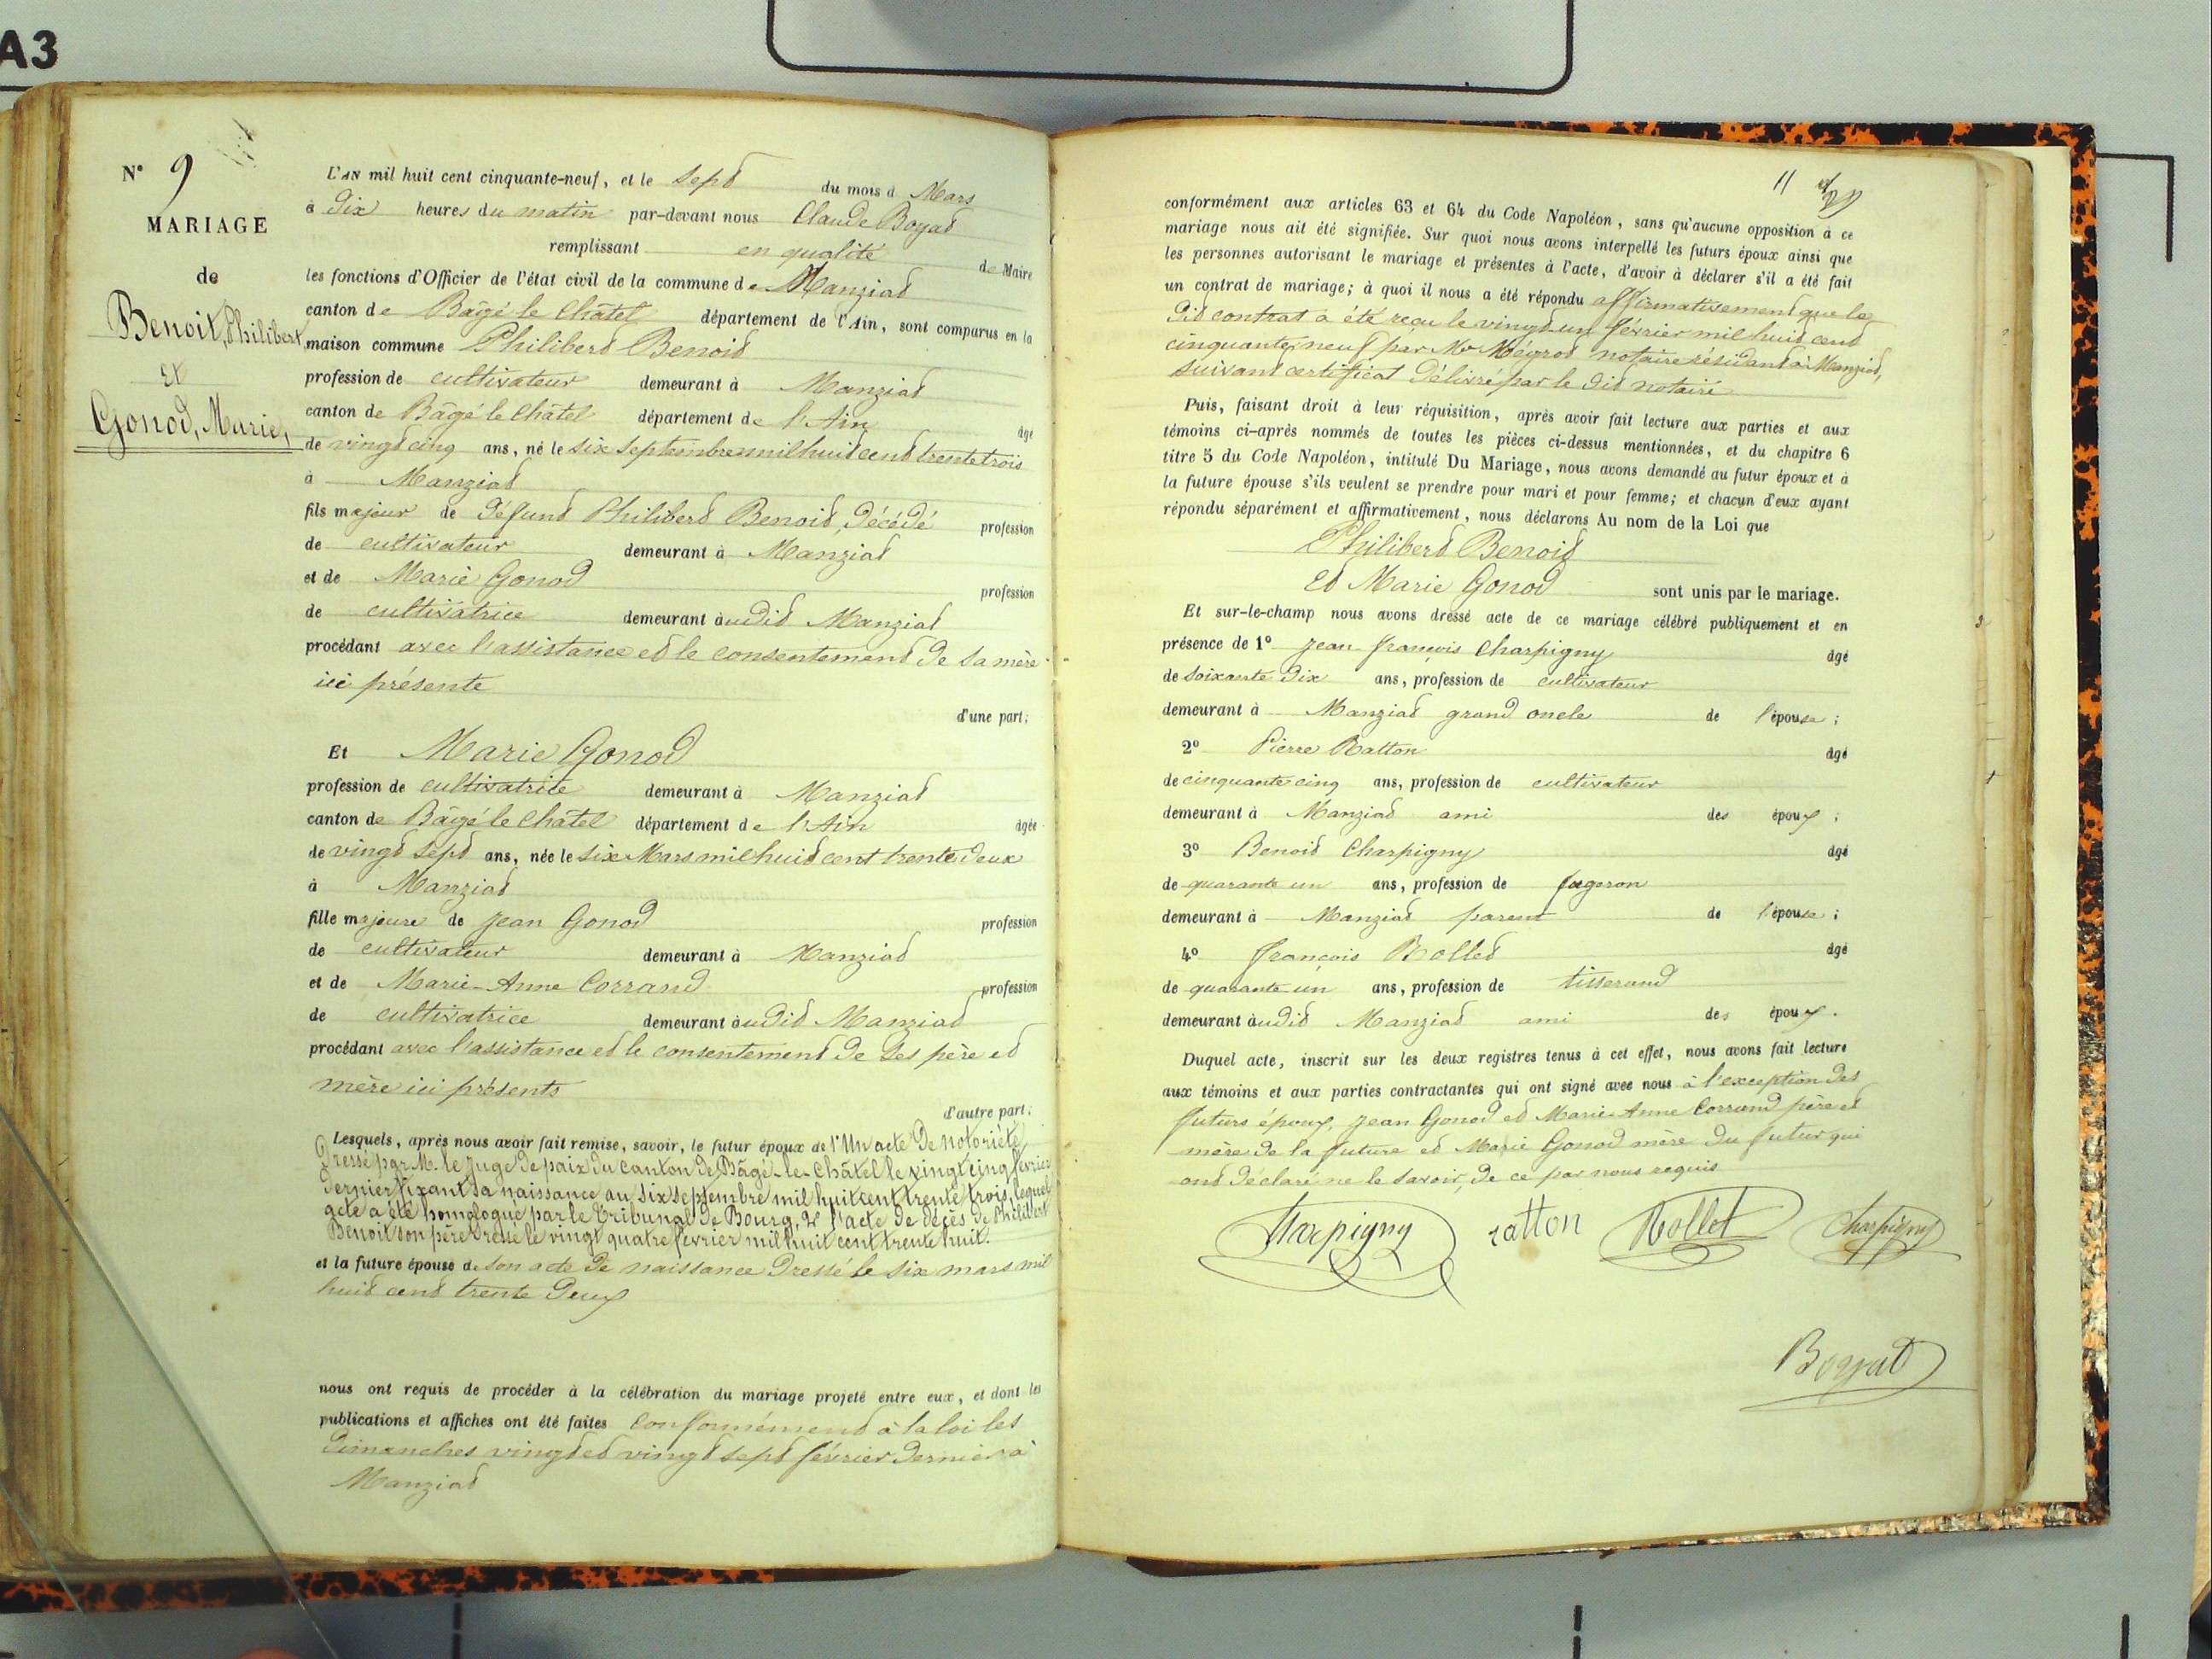 A3
N° 9
MARIAGE
de
Benoit, Philibert
Et
Gonod, Marie,
L'AN mil huit cent cinquante-neuf, et le Sept du mois d Mars
à Dix heures du matin par-devant nous Claude Boyat
remplissant en qualité de Maire
les fonctions d'Officier de l'état civil de la commune de Manziat
canton de Bâgé le Châtel département de l'Ain, sont comparus en la
maison commune Philibert Benoit
profession de cultivateur demeurant à Manziat
canton de Bâgé le Châtel département de l'Ain âgé
de vingt cinq ans, né le six Septembre mil huit cent trente trois
à Manziat
fils majeur de défunt Philibert Benoit, décédé profession
de cultivateur demeurant à Manziat
et de Marie Gonod profession
de cultivatrice demeurant audit Manziat
procédant avec l'assistance et le consentement de sa mère
ici présente
d'une part;
Et Marie Gonod
profession de cultivatrice demeurant à Manziat
canton de Bâgé le Châtel département de l'Ain âgée
de vingt Sept ans, née le Six Mars mil huit cent trente deux
à Manziat
fille majeure de Jean Gonod profession
de cultivateur demeurant à Manziat
et de Marie-Anne Corrand profession
de cultivatrice demeurant audit Manziat
procédant avec l'assistance et le consentement de ses père et
mère ici présents
d'autre part;
Lesquels, après nous avoir fait remise, savoir, le futur époux de l'Un acte De notoriété
Dressé par M. le Juge De paix du canton de Bâgé-le-Châtel le vingt cinq février
dernier fixant sa naissance au six septembre mil huit cent trente trois, lequel
acte a été homologué par le Tribunal De Bourg, & l'acte de décès de Philibert
Benoit son père Dressé le vingt quatre février mil huit cent trente huit.
et la future épouse de son acte de naissance Dressé le six mars mil
huit cent trente Deux
nous ont requis de procéder à la célébration du mariage projeté entre eux, et dont les
publications et affiches ont été faites conformément à la loi les
Dimanches vingt et vingt sept février Dernier à
Manziat
11
conformément aux articles 63 et 64 du Code Napoléon, sans qu'aucune opposition à ce
mariage nous ait été signifiée. Sur quoi nous avons interpellé les futurs époux ainsi que
les personnes autorisant le mariage et présentes à l'acte, d'avoir à déclarer s'il a été fait
un contrat de mariage; à quoi il nous a été répondu affirmativement que le
dit contrat a été reçu le vingt un février mil huit cent
cinquante neuf par Me Mégrod notaire résidant à Manziat,
suivant certificat Délivré par le dit notaire
Puis, faisant droit à leur réquisition, après avoir fait lecture aux parties et aux
témoins ci-après nommés de toutes les pièces ci-dessus mentionnées, et du chapitre 6
titre 5 du Code Napoléon, intitulé Du Mariage, nous avons demandé au futur époux et à
la future épouse s'ils veulent se prendre pour mari et pour femme; et chacun d'eux ayant
répondu séparément et affirmativement, nous déclarons Au nom de la Loi que
Philibert Benoit
Et Marie Gonod sont unis par le mariage.
Et sur-le-champ nous avons dressé acte de ce mariage célébré publiquement et en
présence de 1° Jean François Charpigny âgé
de soixante Dix ans, profession de cultivateur
demeurant à Manziat grand oncle de l'épouse;
2° Pierre Ratton âgé
de cinquante cinq ans, profession de cultivateur
demeurant à Manziat ami des époux;
3° Benoit Charpigny âgé
de quarante un ans, profession de forgeron
demeurant à Manziat parent de l'épouse;
4° François Rollet âgé
de quarante-un ans, profession de tisserand
demeurant audit Manziat ami des époux.
Duquel acte, inscrit sur les deux registres tenus à cet effet, nous avons fait lecture
aux témoins et aux parties contractantes qui ont signé avec nous à l'exception des
futurs époux, Jean Gonod et Marie-Anne Corrand père et
mère de la future et Marie Gonod mère du futur qui
ont déclaré ne le savoir, de ce par nous requis
Charpigny ratton Rollet Charpigny
Boyat